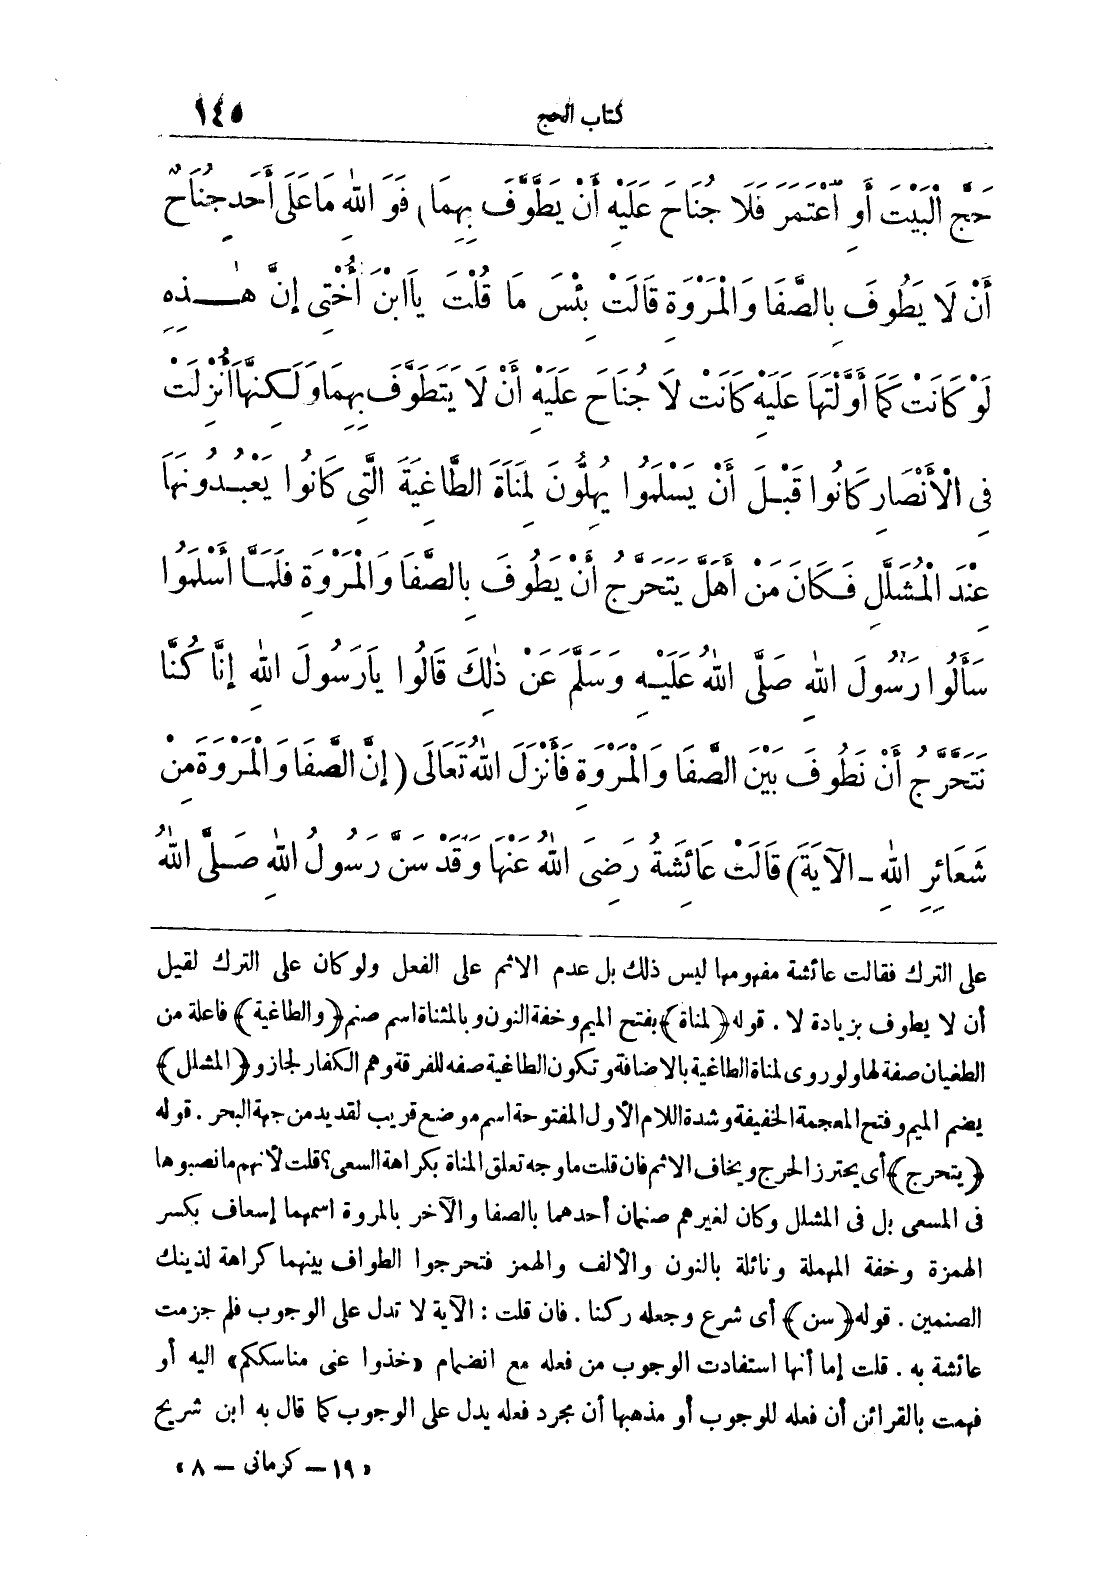 كتاب الحج ١٤٥
حَجَّ الْبَيْتَ أَوِ اعْتَمَرَ فَلَا جُنَاحَ عَلَيْهِ أَنْ يَطَّوَّفَ بِهِمَا) فَوَ اللهِ مَا عَلَى أَحَدٍ جُنَاحٌ
أَنْ لَا يَطُوفَ بِالصَّفَا وَالْمَرْوَةِ قَالَتْ بِئْسَ مَا قُلْتَ يَا ابْنَ أُخْتِى إِنَّ هٰذِهِ
لَوْ كَانَتْ كَمَا أَوَّلْتَهَا عَلَيْهِ كَانَتْ لَا جُنَاحَ عَلَيْهِ أَنْ لَا يَتَطَوَّفَ بِهِمَا وَلَكِنَّهَا أُنْزِلَتْ
فِى الْأَنْصَارِ كَانُوا قَبْلَ أَنْ يُسْلِمُوا يُهِلُّونَ لِمَنَاةَ الطَّاغِيَةِ الَّتِى كَانُوا يَعْبُدُونَهَا
عِنْدَ الْمُشَلَّلِ فَكَانَ مَنْ أَهَلَّ يَتَحَرَّجُ أَنْ يَطُوفَ بِالصَّفَا وَالْمَرْوَةِ فَلَمَّا أَسْلَمُوا
سَأَلُوا رَسُولَ اللهِ صَلَّى اللهُ عَلَيْهِ وَسَلَّمَ عَنْ ذٰلِكَ قَالُوا يَا رَسُولَ اللهِ إِنَّا كُنَّا
نَتَحَرَّجُ أَنْ نَطُوفَ بَيْنَ الصَّفَا وَالْمَرْوَةِ فَأَنْزَلَ اللهُ تَعَالَى (إِنَّ الصَّفَا وَالْمَرْوَةَ مِنْ
شَعَائِرِ اللهِ ـ الآيَةَ) قَالَتْ عَائِشَةُ رَضِىَ اللهُ عَنْهَا وَقَدْ سَنَّ رَسُولُ اللهِ صَلَّى اللهُ
على الترك فقالت عائشة مفهومها ليس ذلك بل عدم الاثم على الفعل ولو كان على الترك لقيل
أن لا يطوف بزيادة لا . قوله ﴿لمناة﴾ بفتح الميم وخفة النون وبالمثناة اسم صنم ﴿والطاغية﴾ فاعلة من
الطغيان صفة لها ولو روى لمناة الطاغية بالاضافة وتكون الطاغية صفه للفرقة وهم الكفار لجاز و﴿المشلل﴾
يضم الميم وفتح المعجمة الخفيفة وشدة اللام الأول المفتوحة اسم موضع قريب لقديد من جهة البحر . قوله
﴿يتحرج﴾ أى يحترز الحرج ويخاف الاثم فان قلت ما وجه تعلق المناة بكراهة السعى؟ قلت لأنهم ما نصبوها
فى المسعى بل فى المشلل وكان لغيرهم صنمان أحدهما بالصفا والآخر بالمروة اسمهما إسعاف بكسر
الهمزة وخفة المهملة ونائلة بالنون والألف والهمز فتحرجوا الطواف بينهما كراهة لذينك
الصنمين . قوله ﴿سن﴾ أى شرع وجعله ركنا . فان قلت : الآية لا تدل على الوجوب فلم جزمت
عائشة به . قلت إما أنها استفادت الوجوب من فعله مع انضمام «خذوا عنى مناسككم» اليه أو
فهمت بالقرائن أن فعله للوجوب أو مذهبها أن مجرد فعله يدل على الوجوب كما قال به ابن شريح
«١٩ – كرمانى – ٨»